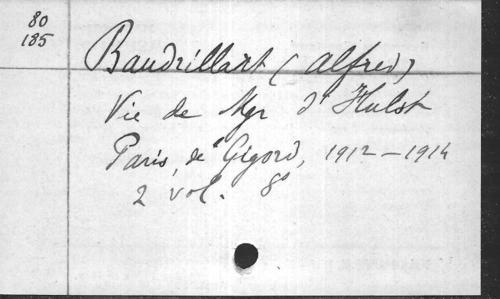 80
185
Baudrillart (Alfred)
Vie de Mgr d'Hulst
Paris, de Gigord, 1912-1914
2 vol. 8°